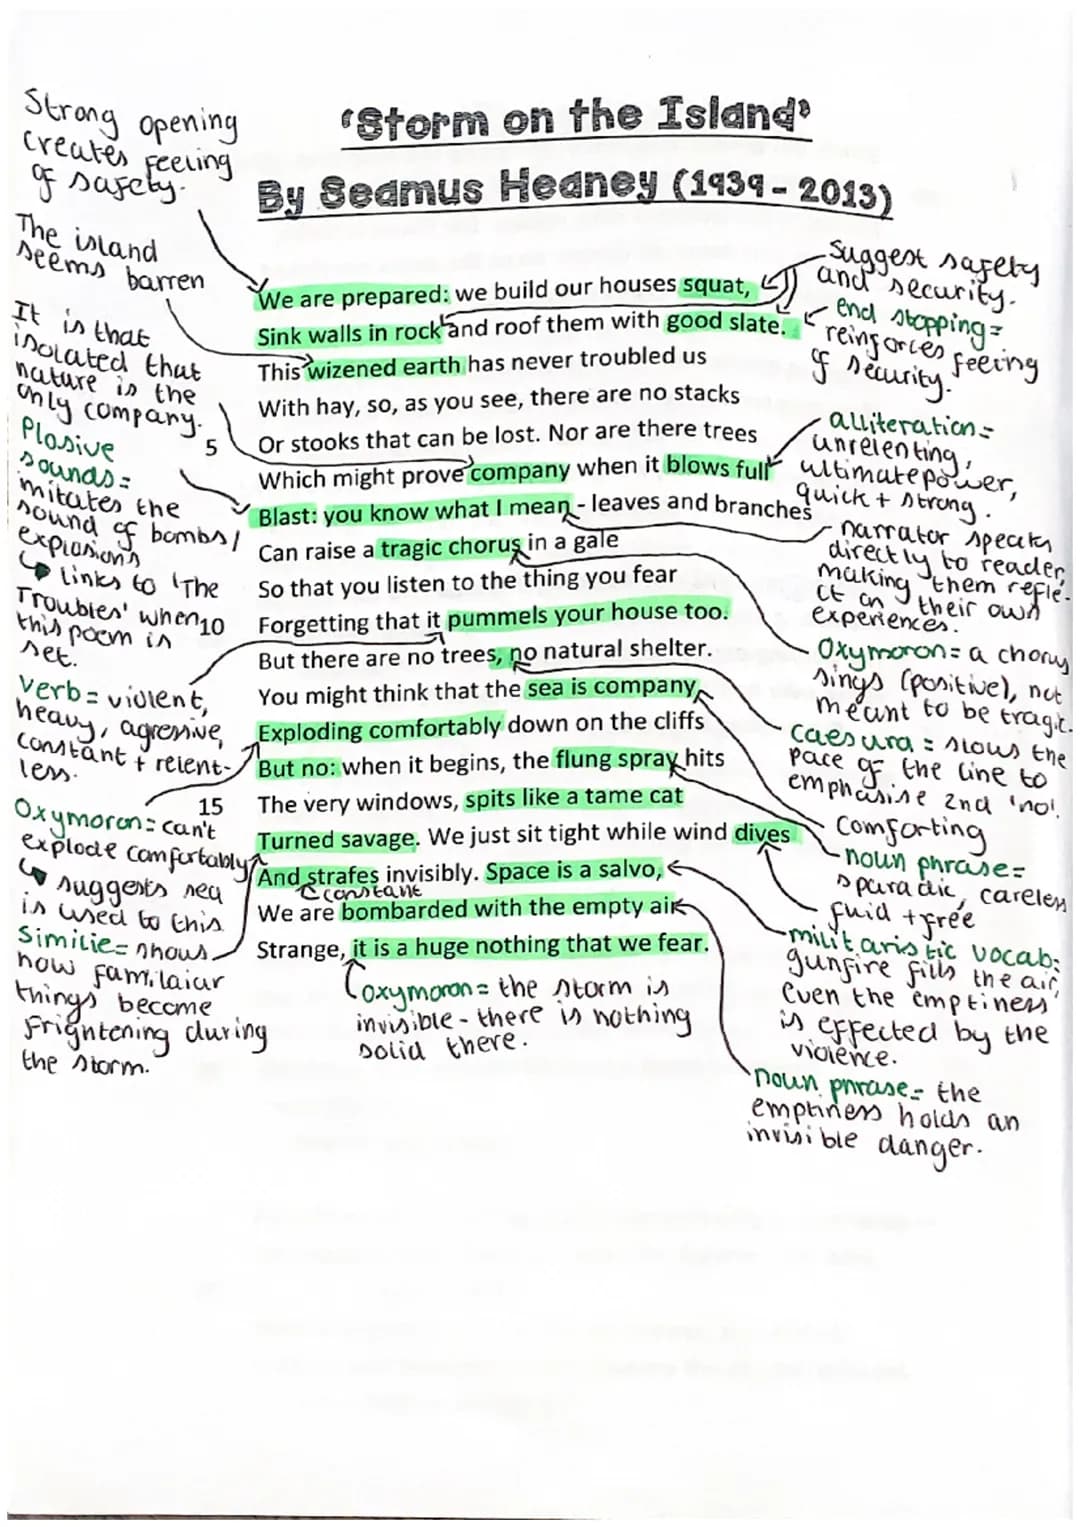 'Storm on the Island'
By Seamus Heaney (1939 - 2013)
Strong opening
creates feeling
of safety.
The island
seems barren
It is that
isolated that
nature is the
only company.
Plosive
sounds=
mitates the
sound of bombs/
explosions
links to 'The
Troubles' when
this poem is
set.
Verb= violent,
heavy, agressive,
constant + relent-
less.
Oxymoron= can't
explode comfortably
suggests sea
is used to this
Similie= shows
how familaiar
things become
frightening during
the storm.
We are prepared: we build our houses squat,
Sink walls in rock and roof them with good slate.
This wizened earth has never troubled us
With hay, so, as you see, there are no stacks
5 Or stooks that can be lost. Nor are there trees
Which might prove company when it blows full
Blast: you know what I mean - leaves and branches
Can raise a tragic chorus in a gale
So that you listen to the thing you fear
10 Forgetting that it pummels your house too.
But there are no trees, no natural shelter.
You might think that the sea is company,
Exploding comfortably down on the cliffs
But no: when it begins, the flung spray hits
15 The very windows, spits like a tame cat
Turned savage. We just sit tight while wind dives
And strafes invisibly. Space is a salvo,
constant
We are bombarded with the empty air
Strange, it is a huge nothing that we fear.
oxymoron= the storm is
invisible - there is nothing
solid there.
Suggest safety
and security.
end stopping=
reinforces feeling
of security.
alliteration=
unrelenting,
ultimate power,
quick + strong.
narrator speaks
directly to reader,
making them refle-
ct on their own
experiences.
Oxymoron= a chorus
sings (positive), not
meant to be tragic.
Caesura = slows the
pace of the line to
emphasise 2nd 'no'.
Comforting
noun phrase=
sparadic, careless
fluid + free
militaristic vocab:
gunfire fills the air,
Even the emptiness
is effected by the
violence.
noun phrase= the
emptiness holds an
invisible danger.